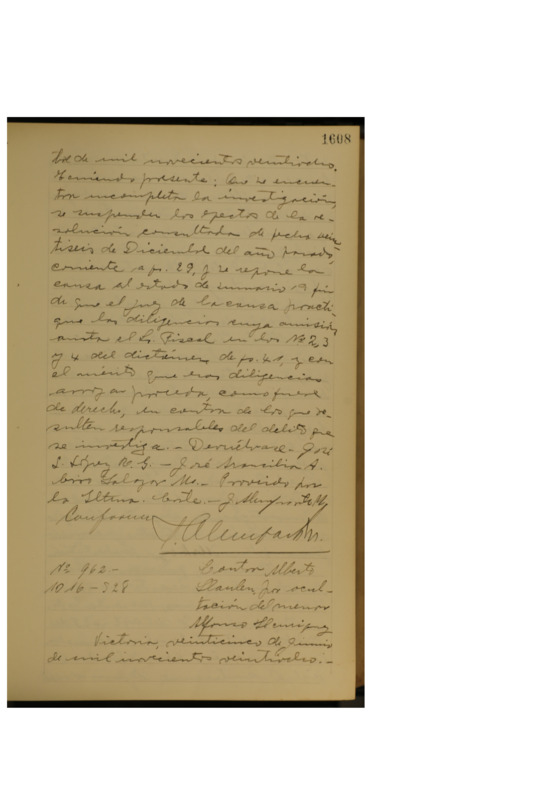 1608
de mil novecientos veintiocho.
Teniendo presente: Que se encuen-
tra incompleta la investigación,
se suspenden los efectos de la re-
solución consultada de fecha vein
tiseis de Diciembre del año pasado,
corriente a fs. 29, y se repone la
causa al estado de sumario a fin
de que el juez de la causa practi
que las diligencias cuya omisión
anota el Sr. Fiscal en los Nº 2, 3
y 4 del dictámen de fs. 41, y con
el mérito que esas diligencias
arrojen proceda, como fuere
de derecho, en contra de los que re-
sulten responsables del delito que
se investiga. - Devuélvase. - José
L. López U. G. - José Arancibia A.
Salazar Mo. - Proveido por
la Iltma. Corte. -
Conforme
Nº 962 -
1016 - 328
Contra Alberto
por ocul-
tación del menor
Alfonso Henriquez
Victoria, veinticinco de Junio
de mil novecientos veintiocho. -